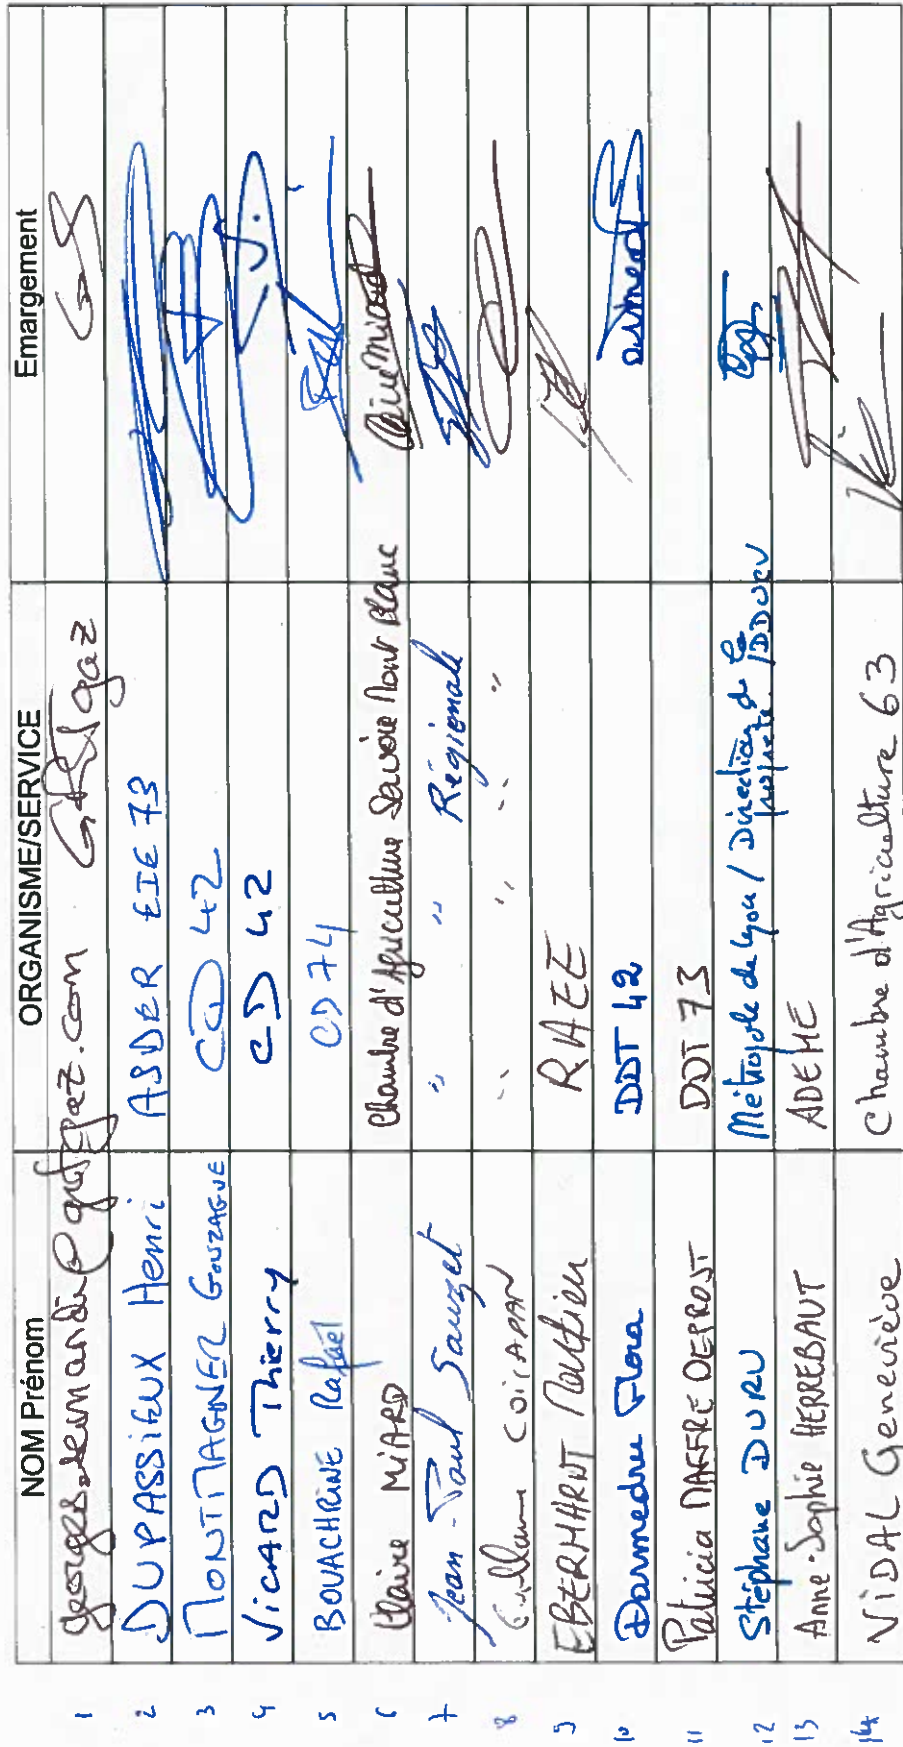 NOM Prénom ORGANISME/SERVICE Emargement
1 grtgaz.com GRTgaz GS
2 DUPASSIEUX Henri ASDER EIE 73
3 MONTMAGNER Gonzague CD 42
4 VICARD Thierry CD 42
5 BOUACHRINE Rafael CD 74
6 Claire MIARD Chambre d'Agriculture Savoie Mont Blanc
7 Jean-Paul Sauzet " " Régionale
8 Guillaume COIFFARD " " " "
9 EBERHARDT RAEE
10 Darmedru Flora DDT 42
11 Patricia MAFFRE DEPROST DDT 73
12 Stéphane DURU Métropole de Lyon / Direction de la propreté
13 Anne-Sophie HERREBAUT ADEME
14 VIDAL Geneviève Chambre d'Agriculture 63